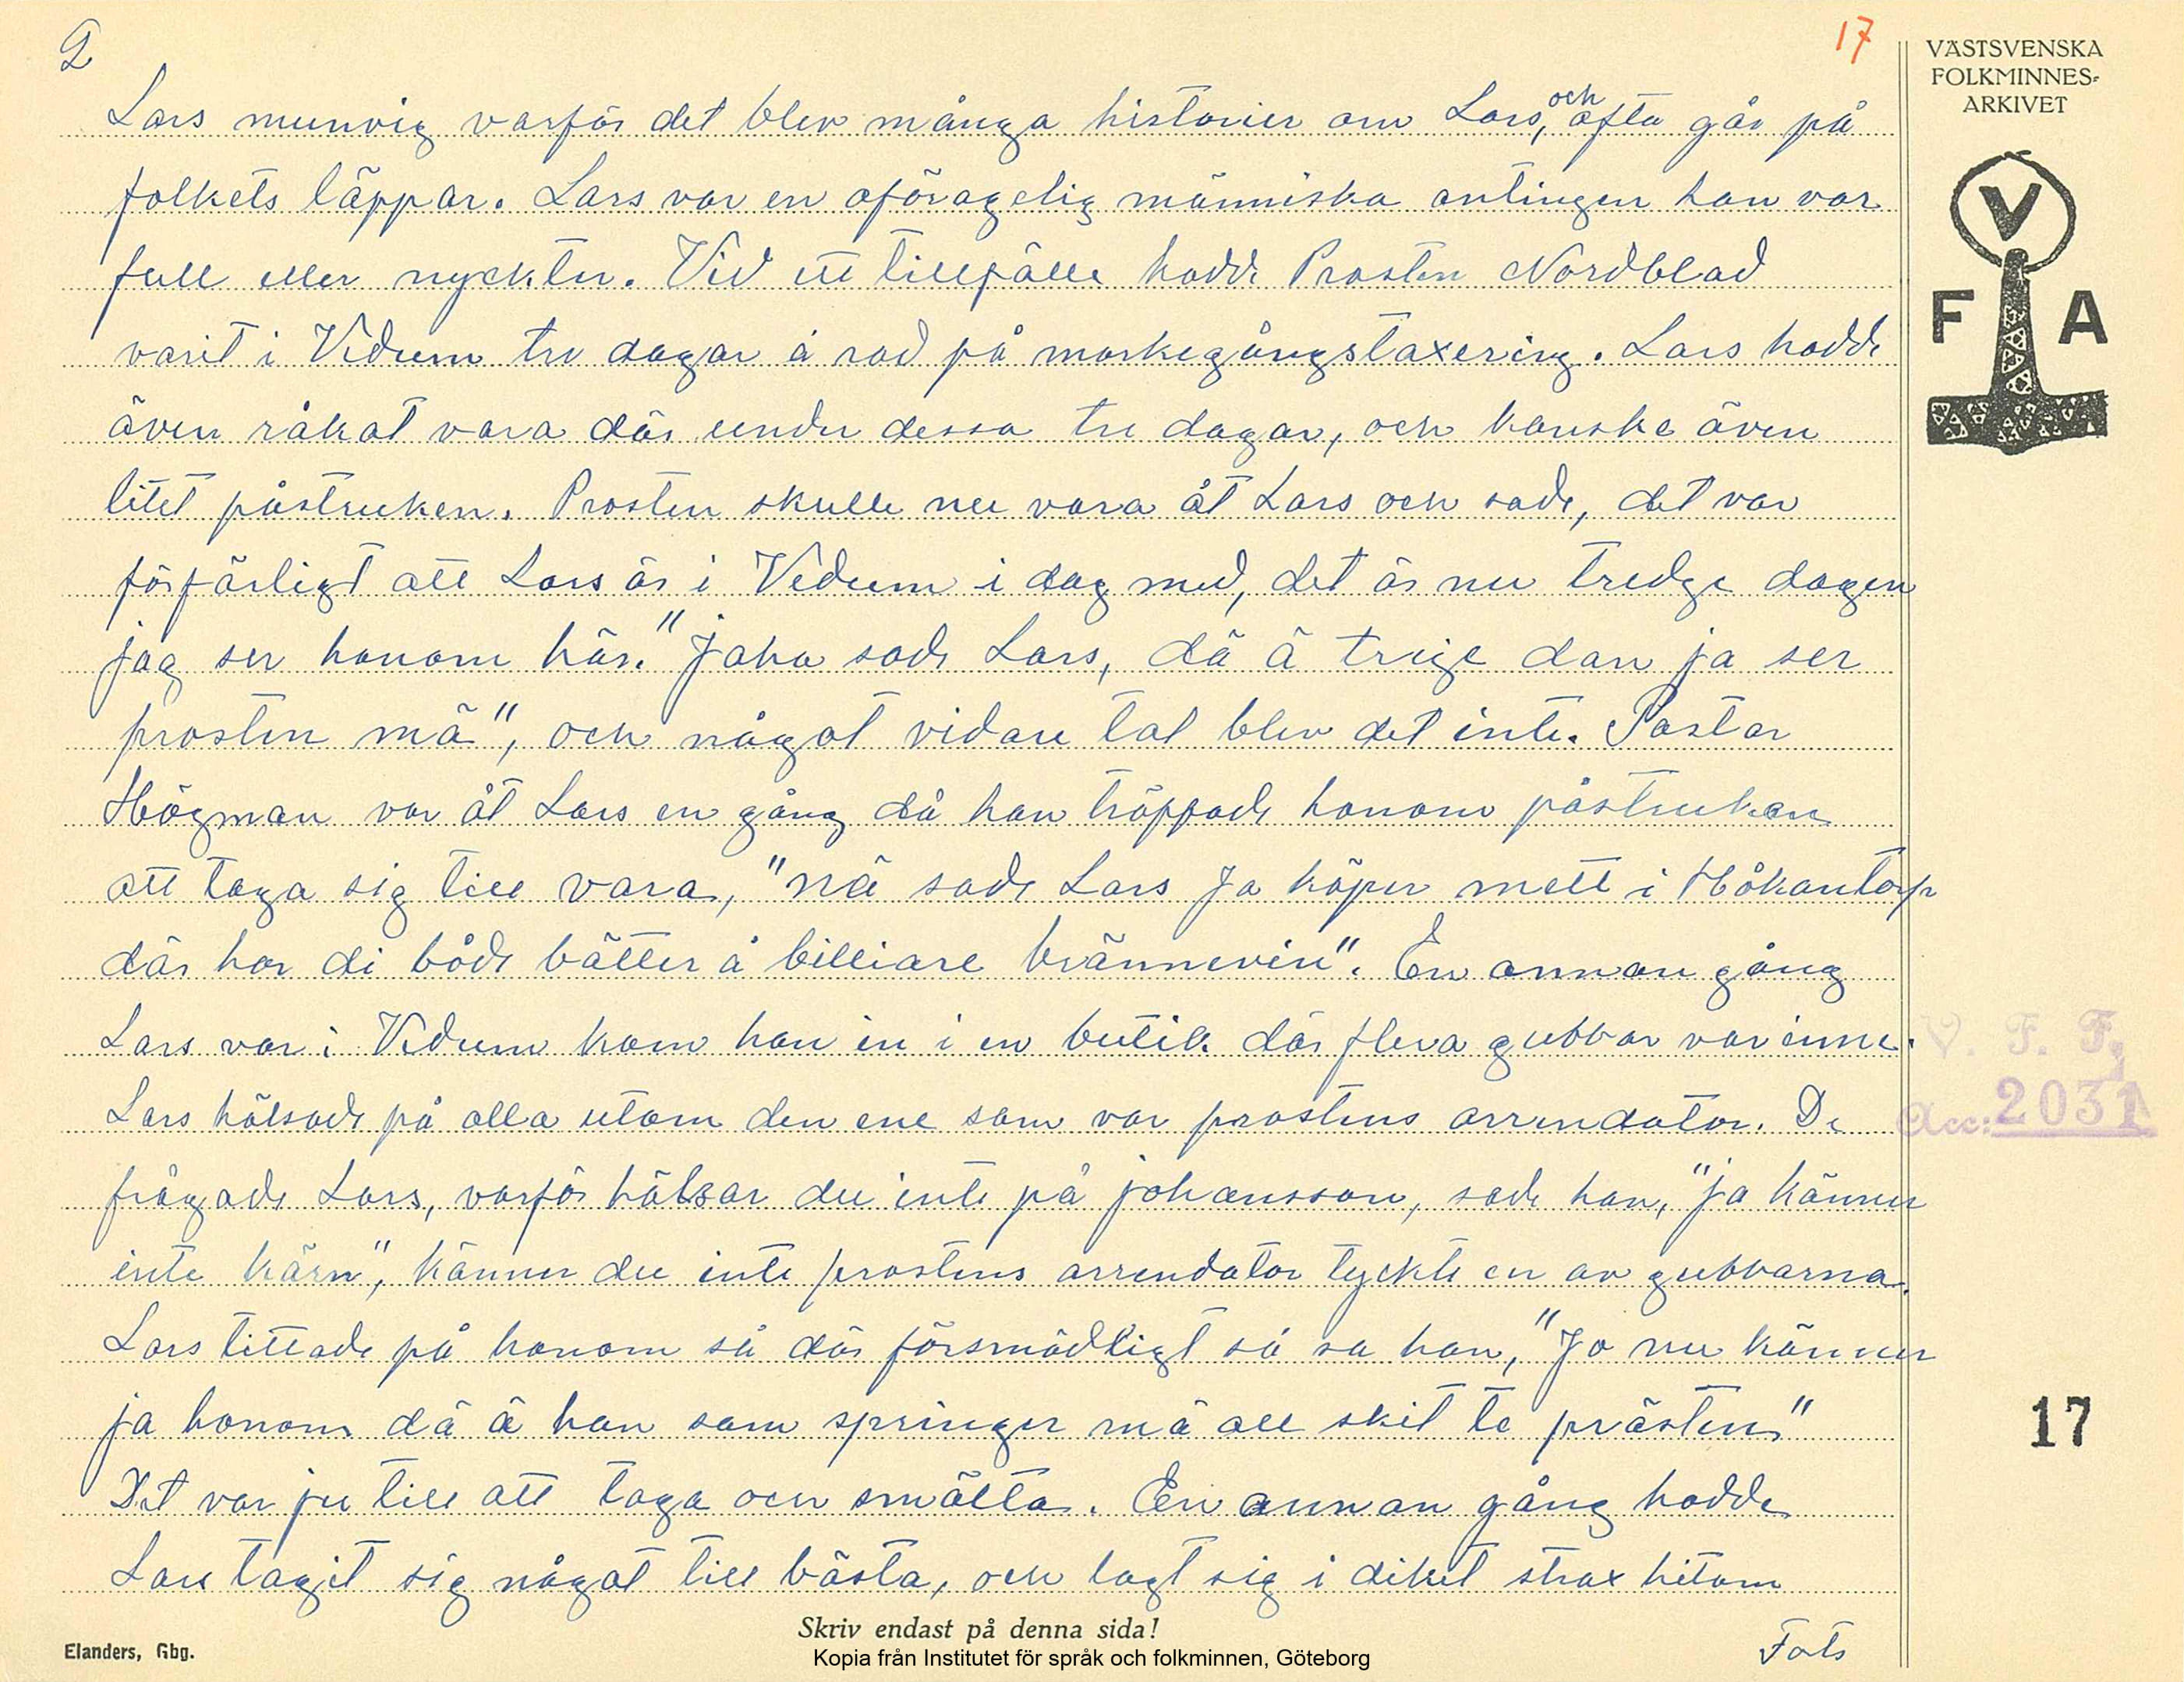 2
17
VÄSTSVENSKA
FOLKMINNES-
ARKIVET
V
F A
Lars munvig varför det blev många historier om Lars, och ofta går på
folkets läppar. Lars var en oföragelig människa antingen han var
full eller nyckter. Vid ett tillfälle hadde Prosten Nordblad
varit i Vedum tre dagar å rad på markegångstaxering. Lars hadde
även råkat vara där under dessa tre dagar, och kanske även
litet påstrucken. Prosten skulle nu vara åt Lars och sade, det var
förfärligt att Lars är i Vedum i dag med, det är nu tredge dagen
jag ser honom här." Jaha sade Lars, dä ä treje dan ja ser
prosten mä", och något vidare tal blev det inte. Pastor
Högman var åt Lars en gång då han träppade honom påstruken
att taga sig till vara, "nä sade Lars Ja köper mett i Håkantorp
där har di både bätter å billiare brännevin". En annan gång
Lars var i Vedum kom han in i en butik där flera gubbar var inne.
Lars hälsade på alla utom den ene som var prostens arrendator. De
frågade Lars, varför hälsar du inte på johansson, sade han, "ja känner
inte kärn", känner du inte prostens arrendator tyckte en av gubbarna.
Lars tittade på honom så där försmädligt så sa han, "Jo nu känner
ja honom dä ä han som springer mä all skit te prästen"
Det var ju till att taga och smälta. En annan gång hadde
Lars tagit sig något till bästa, och lagt sig i diket strax hitom
Forts
V. F. F.
Acc: 2031
17
Skriv endast på denna sida!
Elanders, Gbg.
Kopia från Institutet för språk och folkminnen, Göteborg